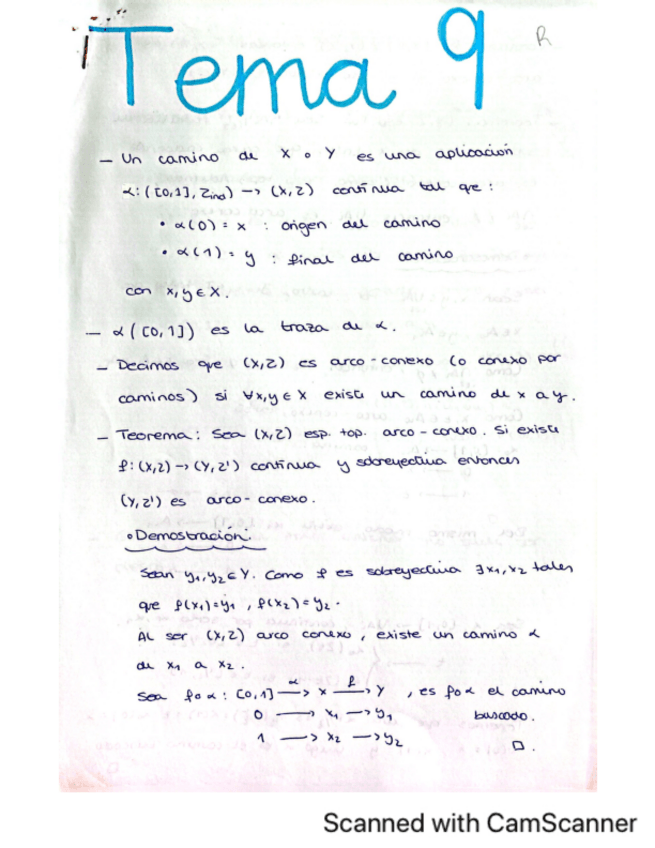 Tema 9
R
- Un camino de x a y es una aplicación
α: ([0,1], τind) → (X,τ) continua tal que :
• α(0) = x : origen del camino
• α(1) = y : final del camino
con x,y ∈ X.
- α([0,1]) es la traza de α.
- Decimos que (X,τ) es arco-conexo (o conexo por
caminos) si ∀x,y ∈ X existe un camino de x a y.
- Teorema: Sea (X,τ) esp. top. arco-conexo. Si existe
f: (X,τ) → (Y,τ') continua y sobreyectiva entonces
(Y,τ') es arco-conexo.
• Demostración:
Sean y₁,y₂ ∈ Y. Como f es sobreyectiva ∃x₁,x₂ tales
que f(x₁)=y₁ , f(x₂)=y₂.
Al ser (X,τ) arco conexo, existe un camino α
de x₁ a x₂.
Sea f∘α : [0,1] —α→ X —f→ Y , es f∘α el camino
0 → x₁ → y₁ buscado.
1 → x₂ → y₂ □.
Scanned with CamScanner